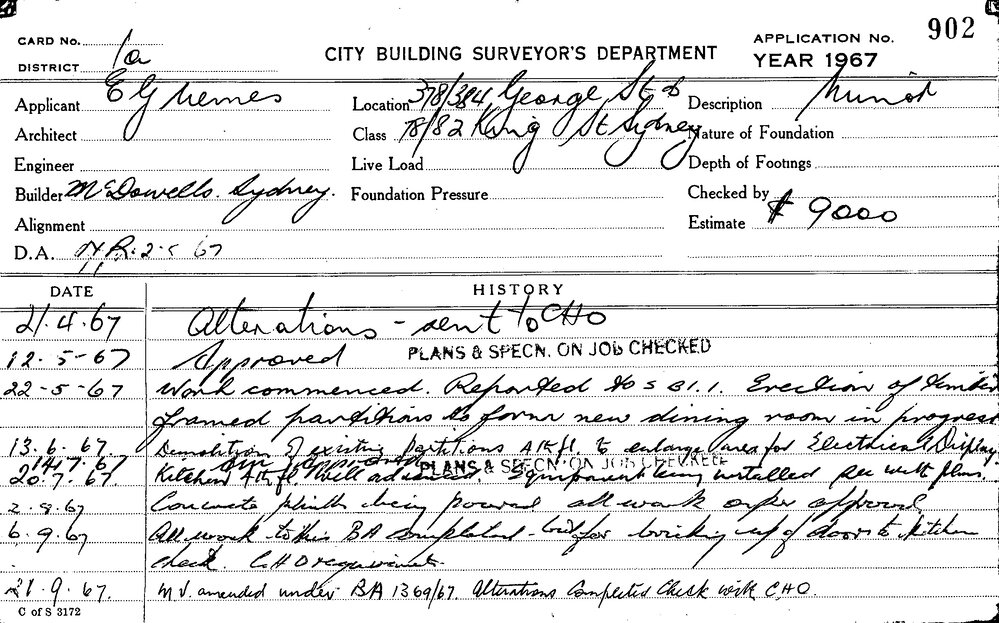 902
CARD No. 1a
CITY BUILDING SURVEYOR'S DEPARTMENT
APPLICATION No.
DISTRICT
YEAR 1967
Applicant E G Nemes
Location 378/384 George St &
Description Minor
Architect
Class 78/82 King St Sydney
Nature of Foundation
Engineer
Live Load
Depth of Footings
Builder McDowells. Sydney.
Foundation Pressure
Checked by
Alignment
Estimate $ 9000
D.A. 2-5 67
DATE HISTORY
21.4.67 Alterations - sent to CHO
12-5-67 Approved PLANS & SPECN. ON JOB CHECKED
22-5-67 Work commenced. Reported to S 31.1. Erection of timber
framed partitions to form new dining room in progress
13.6.67. Demolition of existing partitions 4th fl. to enlarge area for Electrical Display.
14.7.67 PLANS & SPECN. ON JOB CHECKED
20.7.67. Kitchen 4th fl. Well advanced. Equipment being installed
2.8.67 Concrete plinths being poured all work as per approval
6.9.67 All work to this BA completed - but for bricking up of doors to kitchen
check. CHO requirements.
21.9.67. M.V. amended under BA 1369/67 Alterations Completed Check with CHO.
C of S 3172